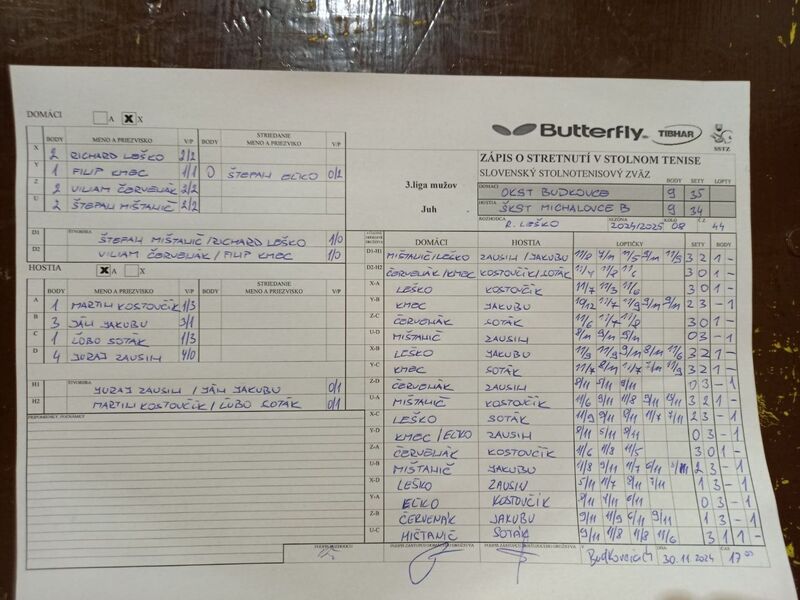 DOMÁCI A X X
Butterfly TIBHAR SSTZ
BODY MENO A PRIEZVISKO V/P BODY STRIEDANIE MENO A PRIEZVISKO V/P
X 2 RICHARD LEŠKO 2/2
Y 1 FILIP KMEC 1/1 0 ŠTEPAN EĽKO 0/2
Z 2 VILIAM ČERVEŇÁK 2/2
U 2 ŠTEPAN MIŠTANIČ 2/2
3.liga mužov
Juh
ZÁPIS O STRETNUTÍ V STOLNOM TENISE
SLOVENSKÝ STOLNOTENISOVÝ ZVÄZ BODY SETY LOPTY
DOMÁCI OKST BUDKOVCE 9 35
HOSTIA ŠKST MICHALOVCE B 9 34
ROZHODCA R. LEŠKO SEZÓNA 2024/2025 KOLO 08 Č.Z. 44
D1 ŠTVORHRA ŠTEPAN MIŠTANIČ / RICHARD LEŠKO 1/0
D2 VILIAM ČERVEŇÁK / FILIP KMEC 1/0
HOSTIA X A X
BODY MENO A PRIEZVISKO V/P BODY STRIEDANIE MENO A PRIEZVISKO V/P
A 1 MARTIN KOSTOVČÍK 1/3
B 3 JÁN JAKUBU 3/1
C 1 ĽUBO SOTÁK 1/3
D 4 JURAJ ZAUSIN 4/0
H1 ŠTVORHRA JURAJ ZAUSIN / JÁN JAKUBU 0/1
H2 MARTIN KOSTOVČÍK / ĽUBO SOTÁK 0/1
PRIPOMIENKY, POZNÁMKY
DOMÁCI HOSTIA LOPTIČKY SETY BODY
D1-H1 MIŠTANIČ/LEŠKO ZAUSIN / JAKUBU 3 2 1 -
D2-H2 ČERVEŇÁK / KMEC KOSTOVČÍK/SOTÁK 3 0 1 -
X-A LEŠKO KOSTOVČÍK 11/7 11/3 11/6 3 0 1 -
Y-B KMEC JAKUBU 10/12 11/7 11/9 9/11 9/11 2 3 - 1
Z-C ČERVEŇÁK SOTÁK 11/6 11/7 11/8 3 0 1 -
U-D MIŠTANIČ ZAUSIN 8/11 9/11 9/11 0 3 - 1
X-B LEŠKO JAKUBU 11/9 11/9 9/11 8/11 11/6 3 2 1 -
Y-C KMEC SOTÁK 11/7 8/11 11/7 7/11 11/9 3 2 1 -
Z-D ČERVEŇÁK ZAUSIN 8/11 5/11 8/11 0 3 - 1
U-A MIŠTANIČ KOSTOVČÍK 11/6 9/11 11/8 9/11 12/10 3 2 1 -
X-C LEŠKO SOTÁK 11/9 9/11 9/11 11/7 7/11 2 3 - 1
Y-D KMEC / EĽKO ZAUSIN 8/11 5/11 8/11 0 3 - 1
Z-A ČERVEŇÁK KOSTOVČÍK 11/6 11/8 11/5 3 0 1 -
U-B MIŠTANIČ JAKUBU 11/8 9/11 11/7 6/11 2 3 - 1
X-D LEŠKO ZAUSIN 5/11 11/7 8/11 7/11 1 3 - 1
Y-A EĽKO KOSTOVČÍK 8/11 7/11 6/11 0 3 - 1
Z-B ČERVEŇÁK JAKUBU 9/11 11/9 6/11 9/11 1 3 - 1
U-C MIŠTANIČ SOTÁK 9/11 11/8 11/8 11/6 3 1 1 -
PODPIS ROZHODCU PODPIS ZÁSTUPCU DOMÁCEHO DRUŽSTVA PODPIS ZÁSTUPCU HOSŤUJÚCEHO DRUŽSTVA V Budkovciach DŇA: 30.11.2024 ČAS: 17:00